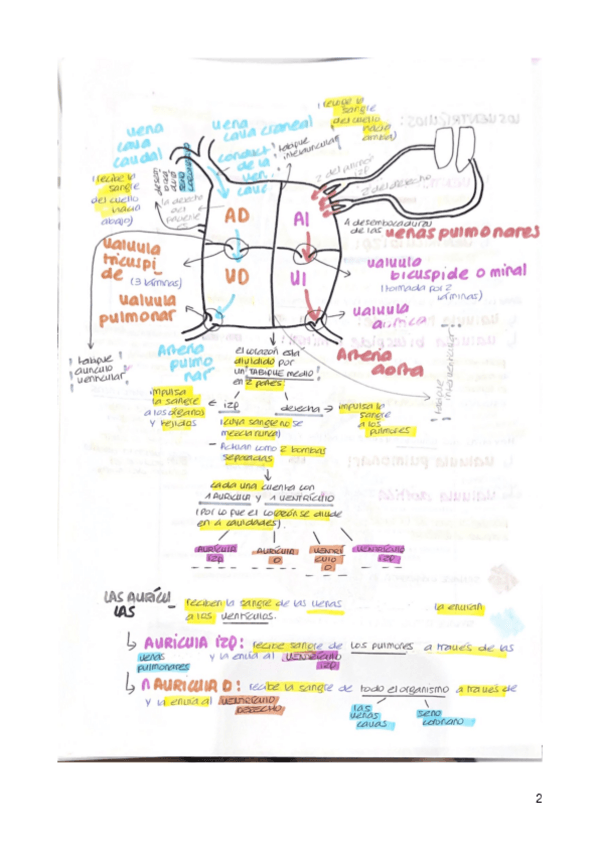 vena cava caudal
(recibe la sangre del cuello hacia abajo)
vena cava craneal
(recibe la sangre del cuello hacia arriba)
tabique interauricular
2 del pulmón izq
2 del derecho
AD
AI
VD
VI
A desembocadura de las venas pulmonares
valvula tricuspide
(3 láminas)
valvula pulmonar
valvula bicuspide o mitral
(formada por 2 láminas)
valvula aórtica
tabique auriculo ventricular
tabique interventricular
Arteria pulmonar
Arteria aorta
el corazón está dividido por un TABIQUE MEDIO en 2 partes:
impulsa la sangre a los órganos y tejidos
izq
derecha
impulsa la sangre a los pulmones
(cuya sangre no se mezcla nunca)
- Actúan como 2 bombas separadas
cada una cuenta con
1 AURICULA y 1 VENTRICULO
(Por lo que el corazón se divide
en 4 cavidades).
AURÍCULA izq
AURICULA D
VENTRÍCULO D
VENTRÍCULO izq
LAS AURÍCULAS
reciben la sangre de las venas
la envían
a los ventrículos.
AURICULA IZQ: recibe sangre de los pulmones a través de las
venas pulmonares y la envía al VENTRICULO IZQ
AURICULA D: recibe la sangre de todo el organismo a través de
y la envía al VENTRICULO DERECHO
las venas cavas
seno coronario
2